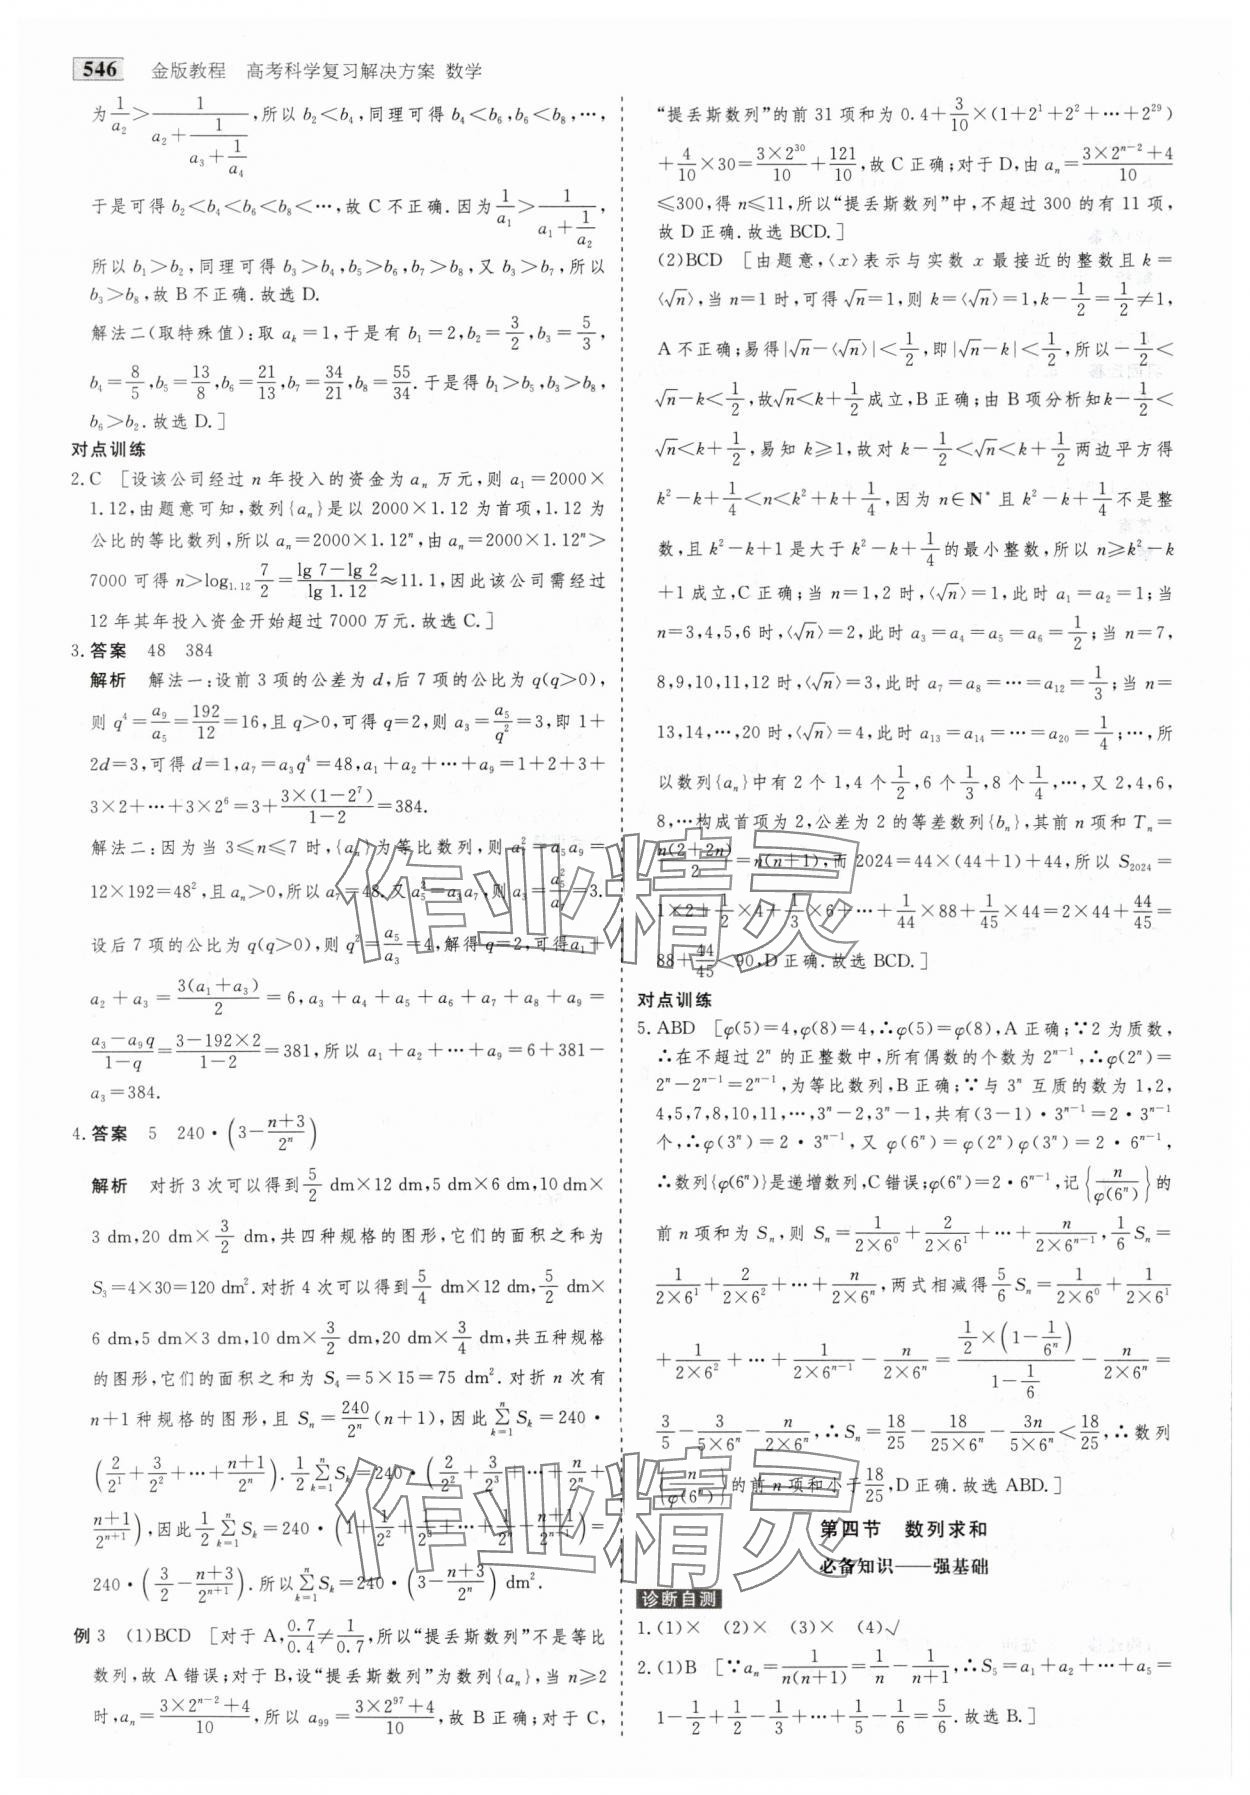 546 金版教程 高考科学复习解决方案 数学
为1/a₂>1/(a₂+1/(a₃+1/a₄)),所以b₂<b₄,同理可得b₄<b₆,b₆<b₈,…,
于是可得b₂<b₄<b₆<b₈<…,故C不正确.因为1/a₁>1/(a₁+1/a₂),
所以b₁>b₂,同理可得b₃>b₄,b₅>b₆,b₇>b₈,又b₃>b₇,所以
b₃>b₈,故B不正确.故选D.
解法二(取特殊值):取aₖ=1,于是有b₁=2,b₂=3/2,b₃=5/3,
b₄=8/5,b₅=13/8,b₆=21/13,b₇=34/21,b₈=55/34.于是得b₁>b₅,b₃>b₈,
b₆>b₂.故选D.]
对点训练
2.C [设该公司经过n年投入的资金为aₙ万元,则a₁=2000×
1.12,由题意可知,数列{aₙ}是以2000×1.12为首项,1.12为
公比的等比数列,所以aₙ=2000×1.12ⁿ,由aₙ=2000×1.12ⁿ>
7000可得n>log₁.₁₂ 7/2=(lg 7-lg 2)/(lg 1.12)≈11.1,因此该公司需经过
12年其年投入资金开始超过7000万元.故选C.]
3.答案 48 384
解析 解法一:设前3项的公差为d,后7项的公比为q(q>0),
则q⁴=a₉/a₅=192/12=16,且q>0,可得q=2,则a₃=a₅/q²=3,即1+
2d=3,可得d=1,a₇=a₃q⁴=48,a₁+a₂+…+a₉=1+2+3+
3×2+…+3×2⁶=3+3×(1-2⁷)/(1-2)=384.
解法二:因为当3≤n≤7时,{aₙ}为等比数列,则a₇²=a₅a₉=
12×192=48²,且aₙ>0,所以a₇=48.又a₅²=a₃a₇,则a₃=a₅²/a₇=3.
设后7项的公比为q(q>0),则q²=a₅/a₃=4,解得q=2,可得a₁+
a₂+a₃=3(a₁+a₃)/2=6,a₃+a₄+a₅+a₆+a₇+a₈+a₉=
(a₃-a₉q)/(1-q)=(3-192×2)/(1-2)=381,所以a₁+a₂+…+a₉=6+381-
a₃=384.
4.答案 5 240·(3-(n+3)/2ⁿ)
解析 对折3次可以得到5/2 dm×12 dm,5 dm×6 dm,10 dm×
3 dm,20 dm×3/2 dm,共四种规格的图形,它们的面积之和为
S₃=4×30=120 dm².对折4次可以得到5/4 dm×12 dm,5/2 dm×
6 dm,5 dm×3 dm,10 dm×3/2 dm,20 dm×3/4 dm,共五种规格
的图形,它们的面积之和为S₄=5×15=75 dm².对折n次有
n+1种规格的图形,且Sₙ=240/2ⁿ(n+1),因此∑ₖ₌₁ⁿSₖ=240·
(2/2¹+3/2²+…+(n+1)/2ⁿ).1/2∑ₖ₌₁ⁿSₖ=240·(2/2²+3/2³+…+n/2ⁿ+
(n+1)/2ⁿ⁺¹),因此1/2∑ₖ₌₁ⁿSₖ=240·(1+1/2²+1/2³+…+1/2ⁿ-(n+1)/2ⁿ⁺¹)=
240·(3/2-(n+3)/2ⁿ⁺¹).所以∑ₖ₌₁ⁿSₖ=240·(3-(n+3)/2ⁿ) dm².
例3 (1)BCD [对于A,0.7/0.4≠1/0.7,所以“提丢斯数列”不是等比
数列,故A错误;对于B,设“提丢斯数列”为数列{aₙ},当n≥2
时,aₙ=(3×2ⁿ⁻²+4)/10,所以a₉₉=(3×2⁹⁷+4)/10,故B正确;对于C,
“提丢斯数列”的前31项和为0.4+3/10×(1+2¹+2²+…+2²⁹)
+4/10×30=3×2³⁰/10+121/10,故C正确;对于D,由aₙ=(3×2ⁿ⁻²+4)/10
≤300,得n≤11,所以“提丢斯数列”中,不超过300的有11项,
故D正确.故选BCD.]
(2)BCD [由题意,⟨x⟩表示与实数x最接近的整数且k=
⟨√n⟩,当n=1时,可得√n=1,则k=⟨√n⟩=1,k-1/2=1/2≠1,
A不正确;易得|√n-⟨√n⟩|<1/2,即|√n-k|<1/2,所以-1/2<
√n-k<1/2,故√n<k+1/2成立,B正确;由B项分析知k-1/2<
√n<k+1/2,易知k≥1,故对k-1/2<√n<k+1/2两边平方得
k²-k+1/4<n<k²+k+1/4,因为n∈N*且k²-k+1/4不是整
数,且k²-k+1是大于k²-k+1/4的最小整数,所以n≥k²-k
+1成立,C正确;当n=1,2时,⟨√n⟩=1,此时a₁=a₂=1;当
n=3,4,5,6时,⟨√n⟩=2,此时a₃=a₄=a₅=a₆=1/2;当n=7,
8,9,10,11,12时,⟨√n⟩=3,此时a₇=a₈=…=a₁₂=1/3;当n=
13,14,…,20时,⟨√n⟩=4,此时a₁₃=a₁₄=…=a₂₀=1/4;…,所
以数列{aₙ}中有2个1,4个1/2,6个1/3,8个1/4,…,又2,4,6,
8,…构成首项为2,公差为2的等差数列{bₙ},其前n项和Tₙ=
n(2+2n)/2=n(n+1),而2024=44×(44+1)+44,所以S₂₀₂₄=
1×2+1/2×4+1/3×6+…+1/44×88+1/45×44=2×44+44/45=
88+44/45<90,D正确.故选BCD.]
对点训练
5.ABD [φ(5)=4,φ(8)=4,∴φ(5)=φ(8),A正确;∵2为质数,
∴在不超过2ⁿ的正整数中,所有偶数的个数为2ⁿ⁻¹,∴φ(2ⁿ)=
2ⁿ-2ⁿ⁻¹=2ⁿ⁻¹,为等比数列,B正确;∵与3ⁿ互质的数为1,2,
4,5,7,8,10,11,…,3ⁿ-2,3ⁿ-1,共有(3-1)·3ⁿ⁻¹=2·3ⁿ⁻¹
个,∴φ(3ⁿ)=2·3ⁿ⁻¹,又φ(6ⁿ)=φ(2ⁿ)φ(3ⁿ)=2·6ⁿ⁻¹,
∴数列{φ(6ⁿ)}是递增数列,C错误;φ(6ⁿ)=2·6ⁿ⁻¹,记{n/φ(6ⁿ)}的
前n项和为Sₙ,则Sₙ=1/(2×6⁰)+2/(2×6¹)+…+n/(2×6ⁿ⁻¹),1/6Sₙ=
1/(2×6¹)+2/(2×6²)+…+n/(2×6ⁿ),两式相减得5/6Sₙ=1/(2×6⁰)+1/(2×6¹)
+1/(2×6²)+…+1/(2×6ⁿ⁻¹)-n/(2×6ⁿ)=(1/2×(1-1/6ⁿ))/(1-1/6)-n/(2×6ⁿ)=
3/5-3/(5×6ⁿ)-n/(2×6ⁿ),∴Sₙ=18/25-18/(25×6ⁿ)-3n/(5×6ⁿ)<18/25,∴数列
{n/φ(6ⁿ)}的前n项和小于18/25,D正确.故选ABD.]
第四节 数列求和
必备知识——强基础
诊断自测
1.(1)× (2)× (3)× (4)√
2.(1)B [∵aₙ=1/(n(n+1))=1/n-1/(n+1),∴S₅=a₁+a₂+…+a₅=
1-1/2+1/2-1/3+…+1/5-1/6=5/6.故选B.]
作业精灵
作业精灵